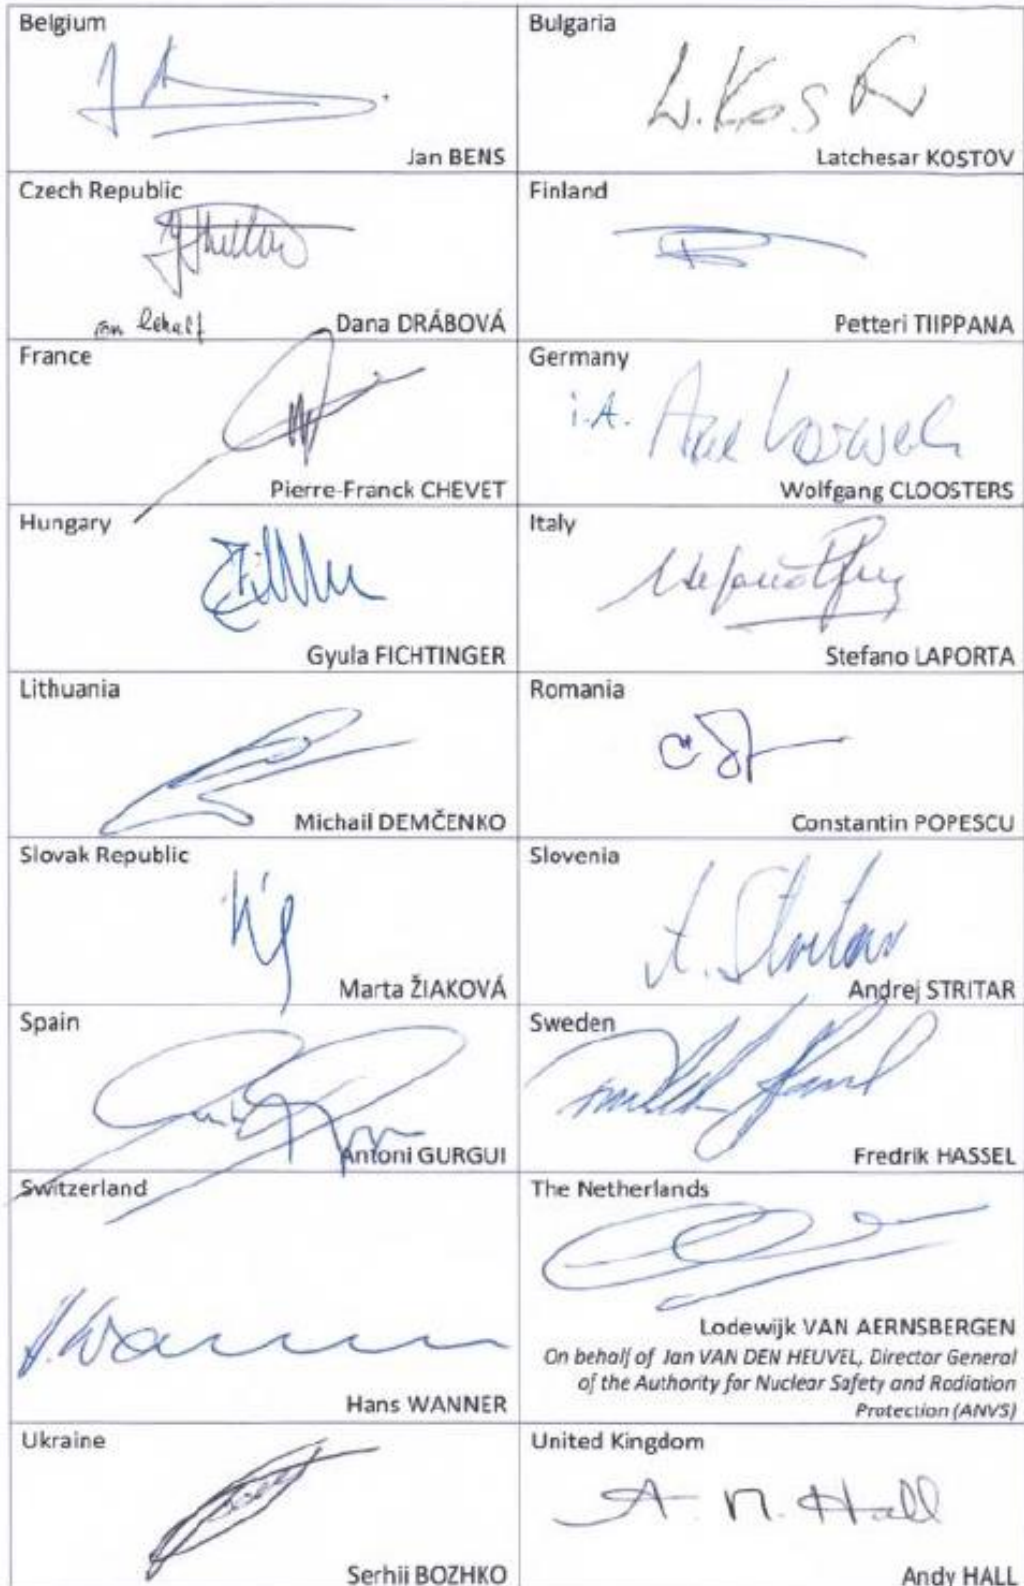 Belgium
Jan BENS
Bulgaria
L. Kos
Latchesar KOSTOV
Czech Republic
on behalf
Dana DRÁBOVÁ
Finland
Petteri TIIPPANA
France
Pierre-Franck CHEVET
Germany
i.A.
Wolfgang CLOOSTERS
Hungary
Gyula FICHTINGER
Italy
Stefano LAPORTA
Lithuania
Michail DEMČENKO
Romania
Constantin POPESCU
Slovak Republic
Marta ŽIAKOVÁ
Slovenia
A. Stritar
Andrej STRITAR
Spain
Antoni GURGUI
Sweden
Fredrik HASSEL
Switzerland
H. Wanner
Hans WANNER
The Netherlands
Lodewijk VAN AERNSBERGEN
On behalf of Jan VAN DEN HEUVEL, Director General
of the Authority for Nuclear Safety and Radiation
Protection (ANVS)
Ukraine
Serhii BOZHKO
United Kingdom
A. N. Hall
Andy HALL